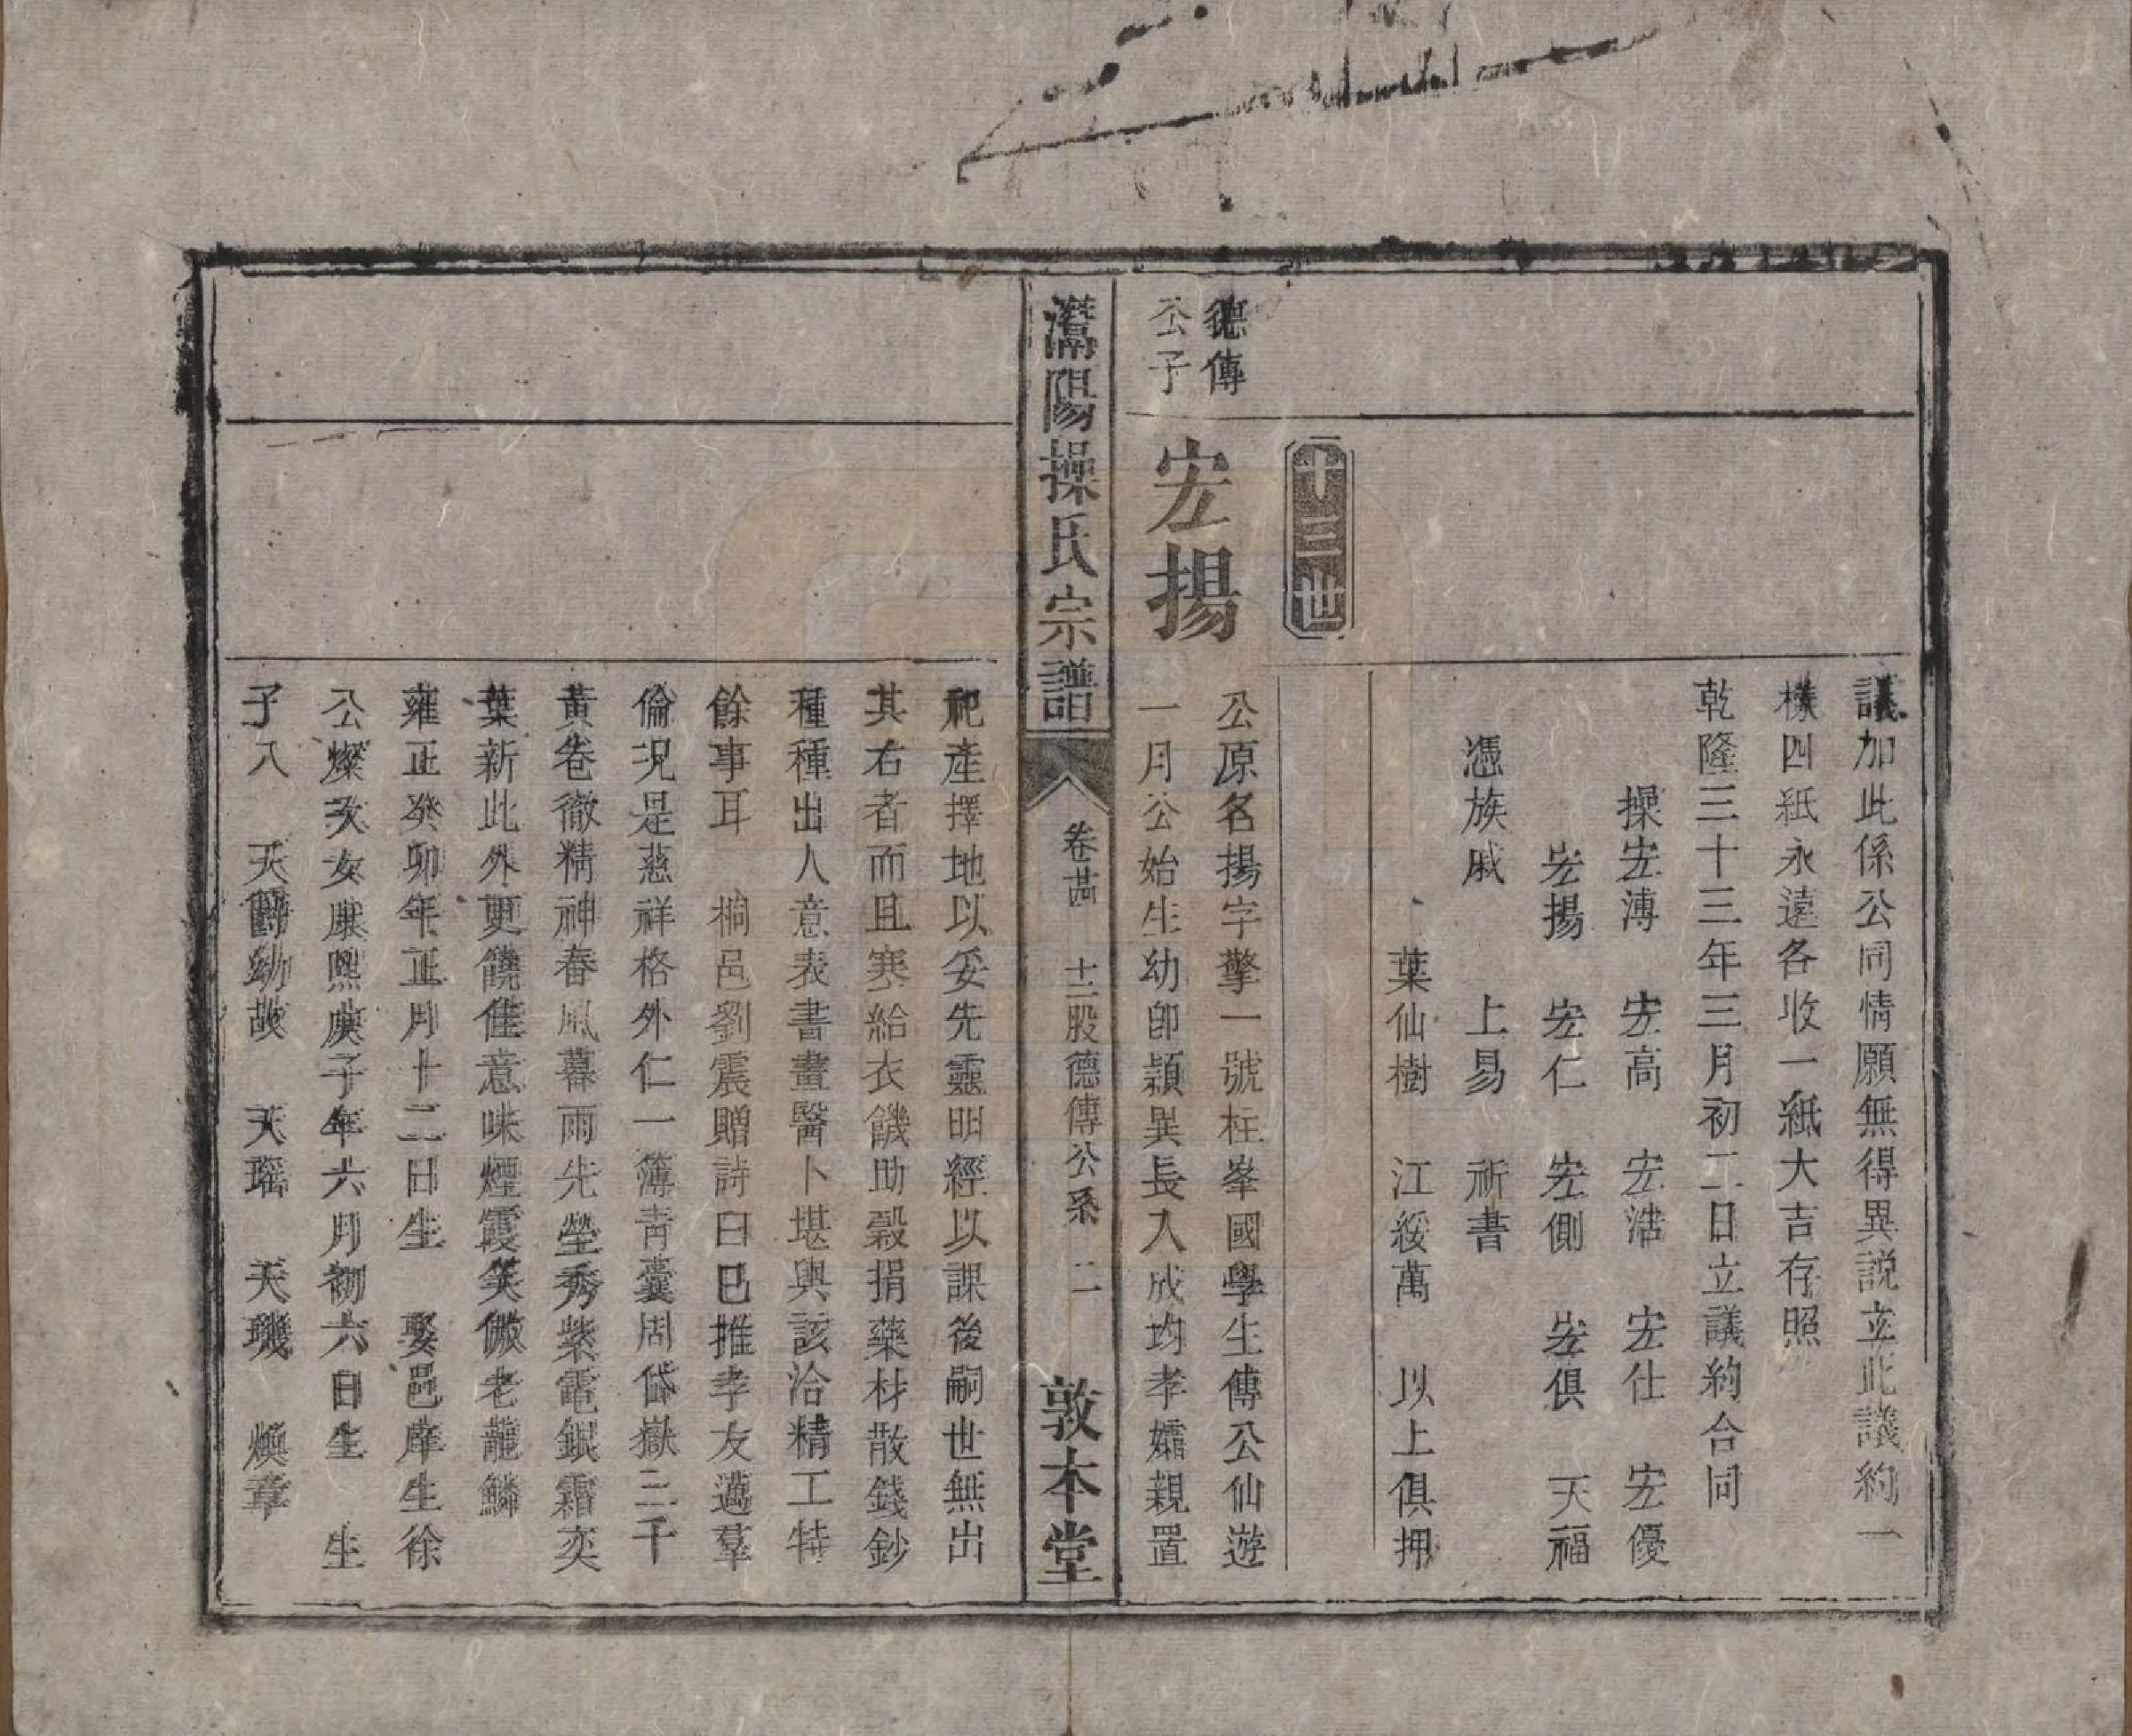 議加此係公同情願無得異説立此議約一
樣四紙永遠各收一紙大吉存照
乾隆三十三年三月初二日立議約合同
操宏溥 宏高 宏浩 宏仕 宏優
宏揚 宏仁 宏側 宏俱 天福
憑族戚 上易 祈書
葉仙樹 江綏萬 以上俱押
十三世
德傳
公子
宏揚
公原名揚字擎一號柱峯國學生傳公仙遊
一月公始生幼卽頴異長入成均孝孀親置
灊陽操氏宗譜 卷苗 十二股德傳公系 二 敦本堂
祀產擇地以妥先靈明經以課後嗣世無出
其右者而且寒給衣饑助穀捐藥材散錢鈔
種種出人意表書畫醫卜堪輿該洽精工特
餘事耳 桐邑劉震贈詩曰已推孝友邁羣
倫况是慈祥格外仁一簿靑囊周岱嶽三千
黃卷徹精神春風暮雨先塋秀紫電銀霜奕
葉新此外更饒佳意味煙霞笑傲老龍鱗
雍正癸卯年正月十二日生 娶邑庠生徐
公燦次女康熙庚子年六月初六日生 生
子八 天爵幼故 天瑶 天璣 煥章